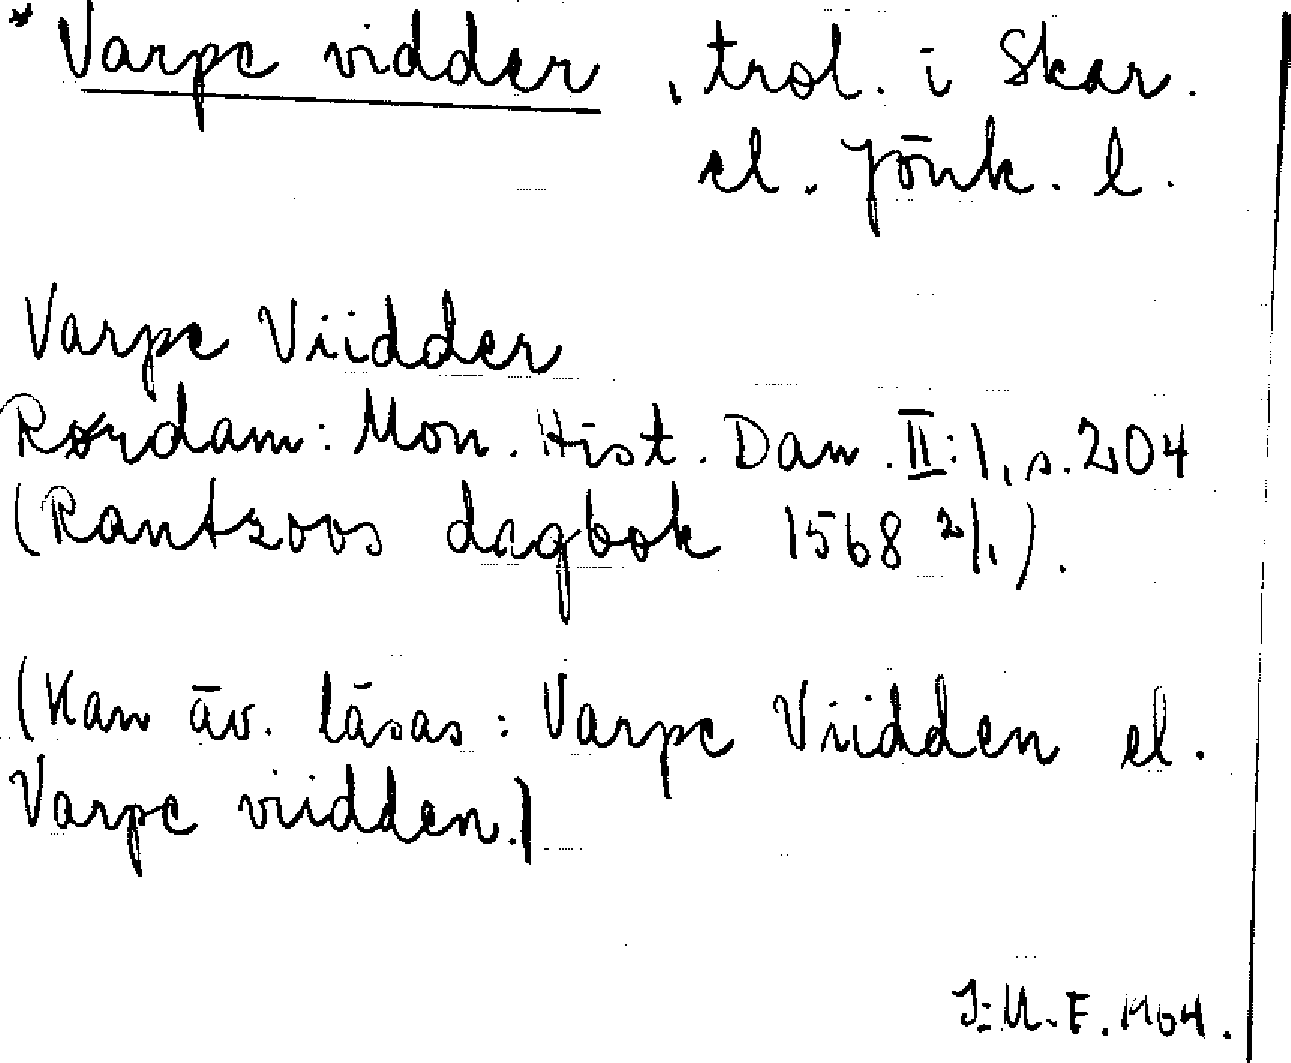 * Varpe vidder, trol. i Skar.
el. Jönk. l.
Varpe Viidder
Rørdam: Mon. Hist. Dan. II:1, s. 204
(Rantzoos dagbok 1568 2/1).
(Kan äv. läsas: Varpe Viidden el.
Varpe viidden.)